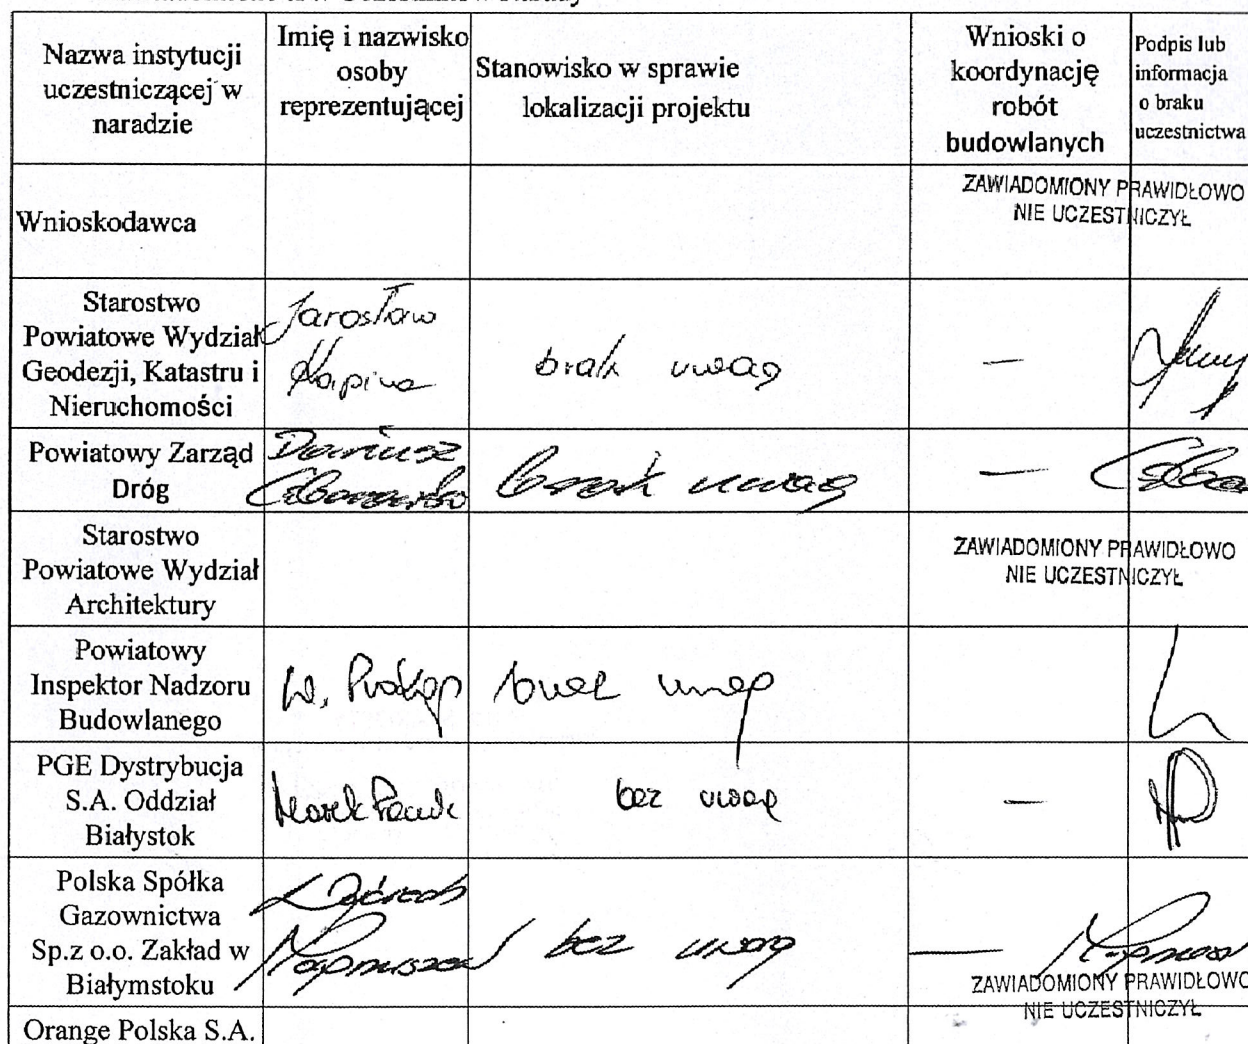 Nazwa instytucji
uczestniczącej w
naradzie
Imię i nazwisko
osoby
reprezentującej
Stanowisko w sprawie
lokalizacji projektu
Wnioski o
koordynację
robót
budowlanych
Podpis lub
informacja
o braku
uczestnictwa
Wnioskodawca
ZAWIADOMIONY PRAWIDŁOWO
NIE UCZESTNICZYŁ
Starostwo
Powiatowe Wydział
Geodezji, Katastru i
Nieruchomości
Jarosław
brak uwag
—
Powiatowy Zarząd
Dróg
Dariusz
brak uwag
—
Starostwo
Powiatowe Wydział
Architektury
ZAWIADOMIONY PRAWIDŁOWO
NIE UCZESTNICZYŁ
Powiatowy
Inspektor Nadzoru
Budowlanego
W. Prokop
brak uwag
PGE Dystrybucja
S.A. Oddział
Białystok
Marek
bez uwag
—
Polska Spółka
Gazownictwa
Sp.z o.o. Zakład w
Białymstoku
bez uwag
—
ZAWIADOMIONY PRAWIDŁOWO
NIE UCZESTNICZYŁ
Orange Polska S.A.